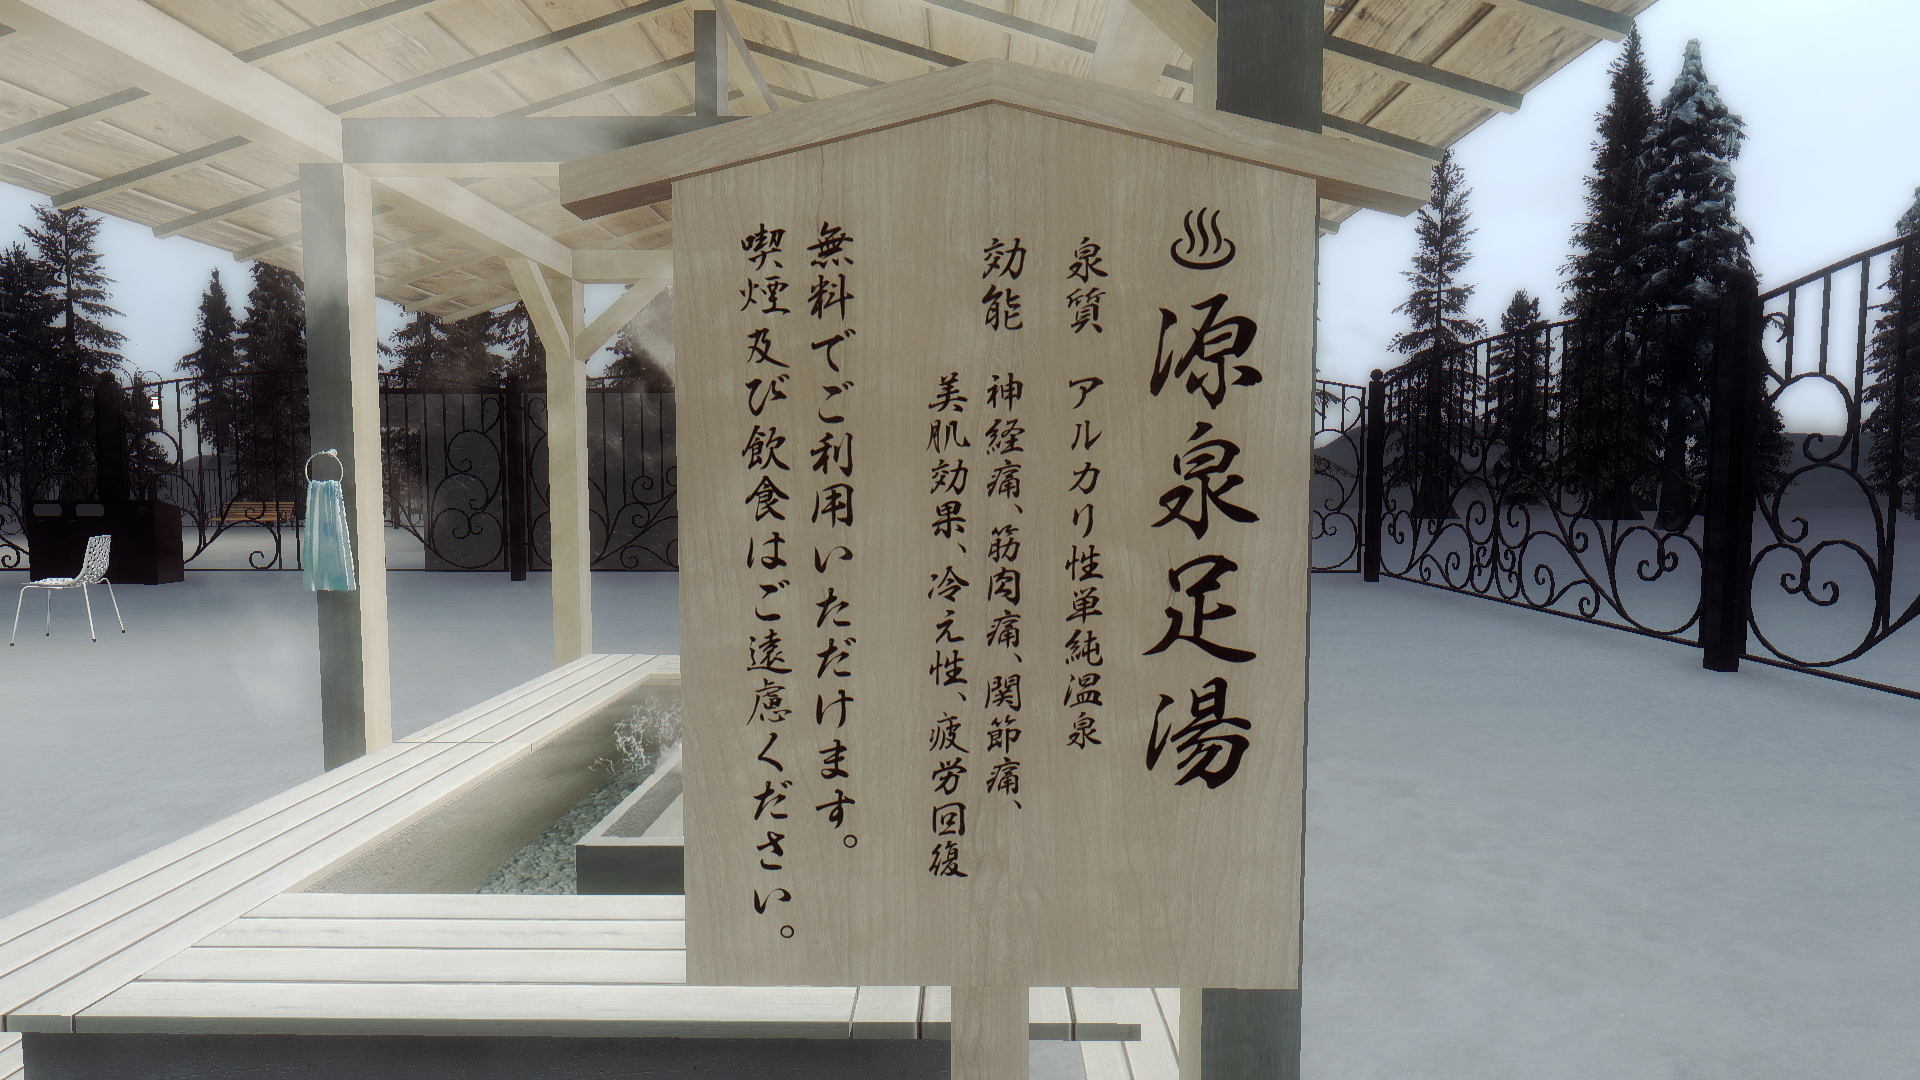 ♨源泉足湯
泉質 アルカリ性単純温泉
効能 神経痛、筋肉痛、関節痛、
美肌効果、冷え性、疲労回復
無料でご利用いただけます。
喫煙及び飲食はご遠慮ください。